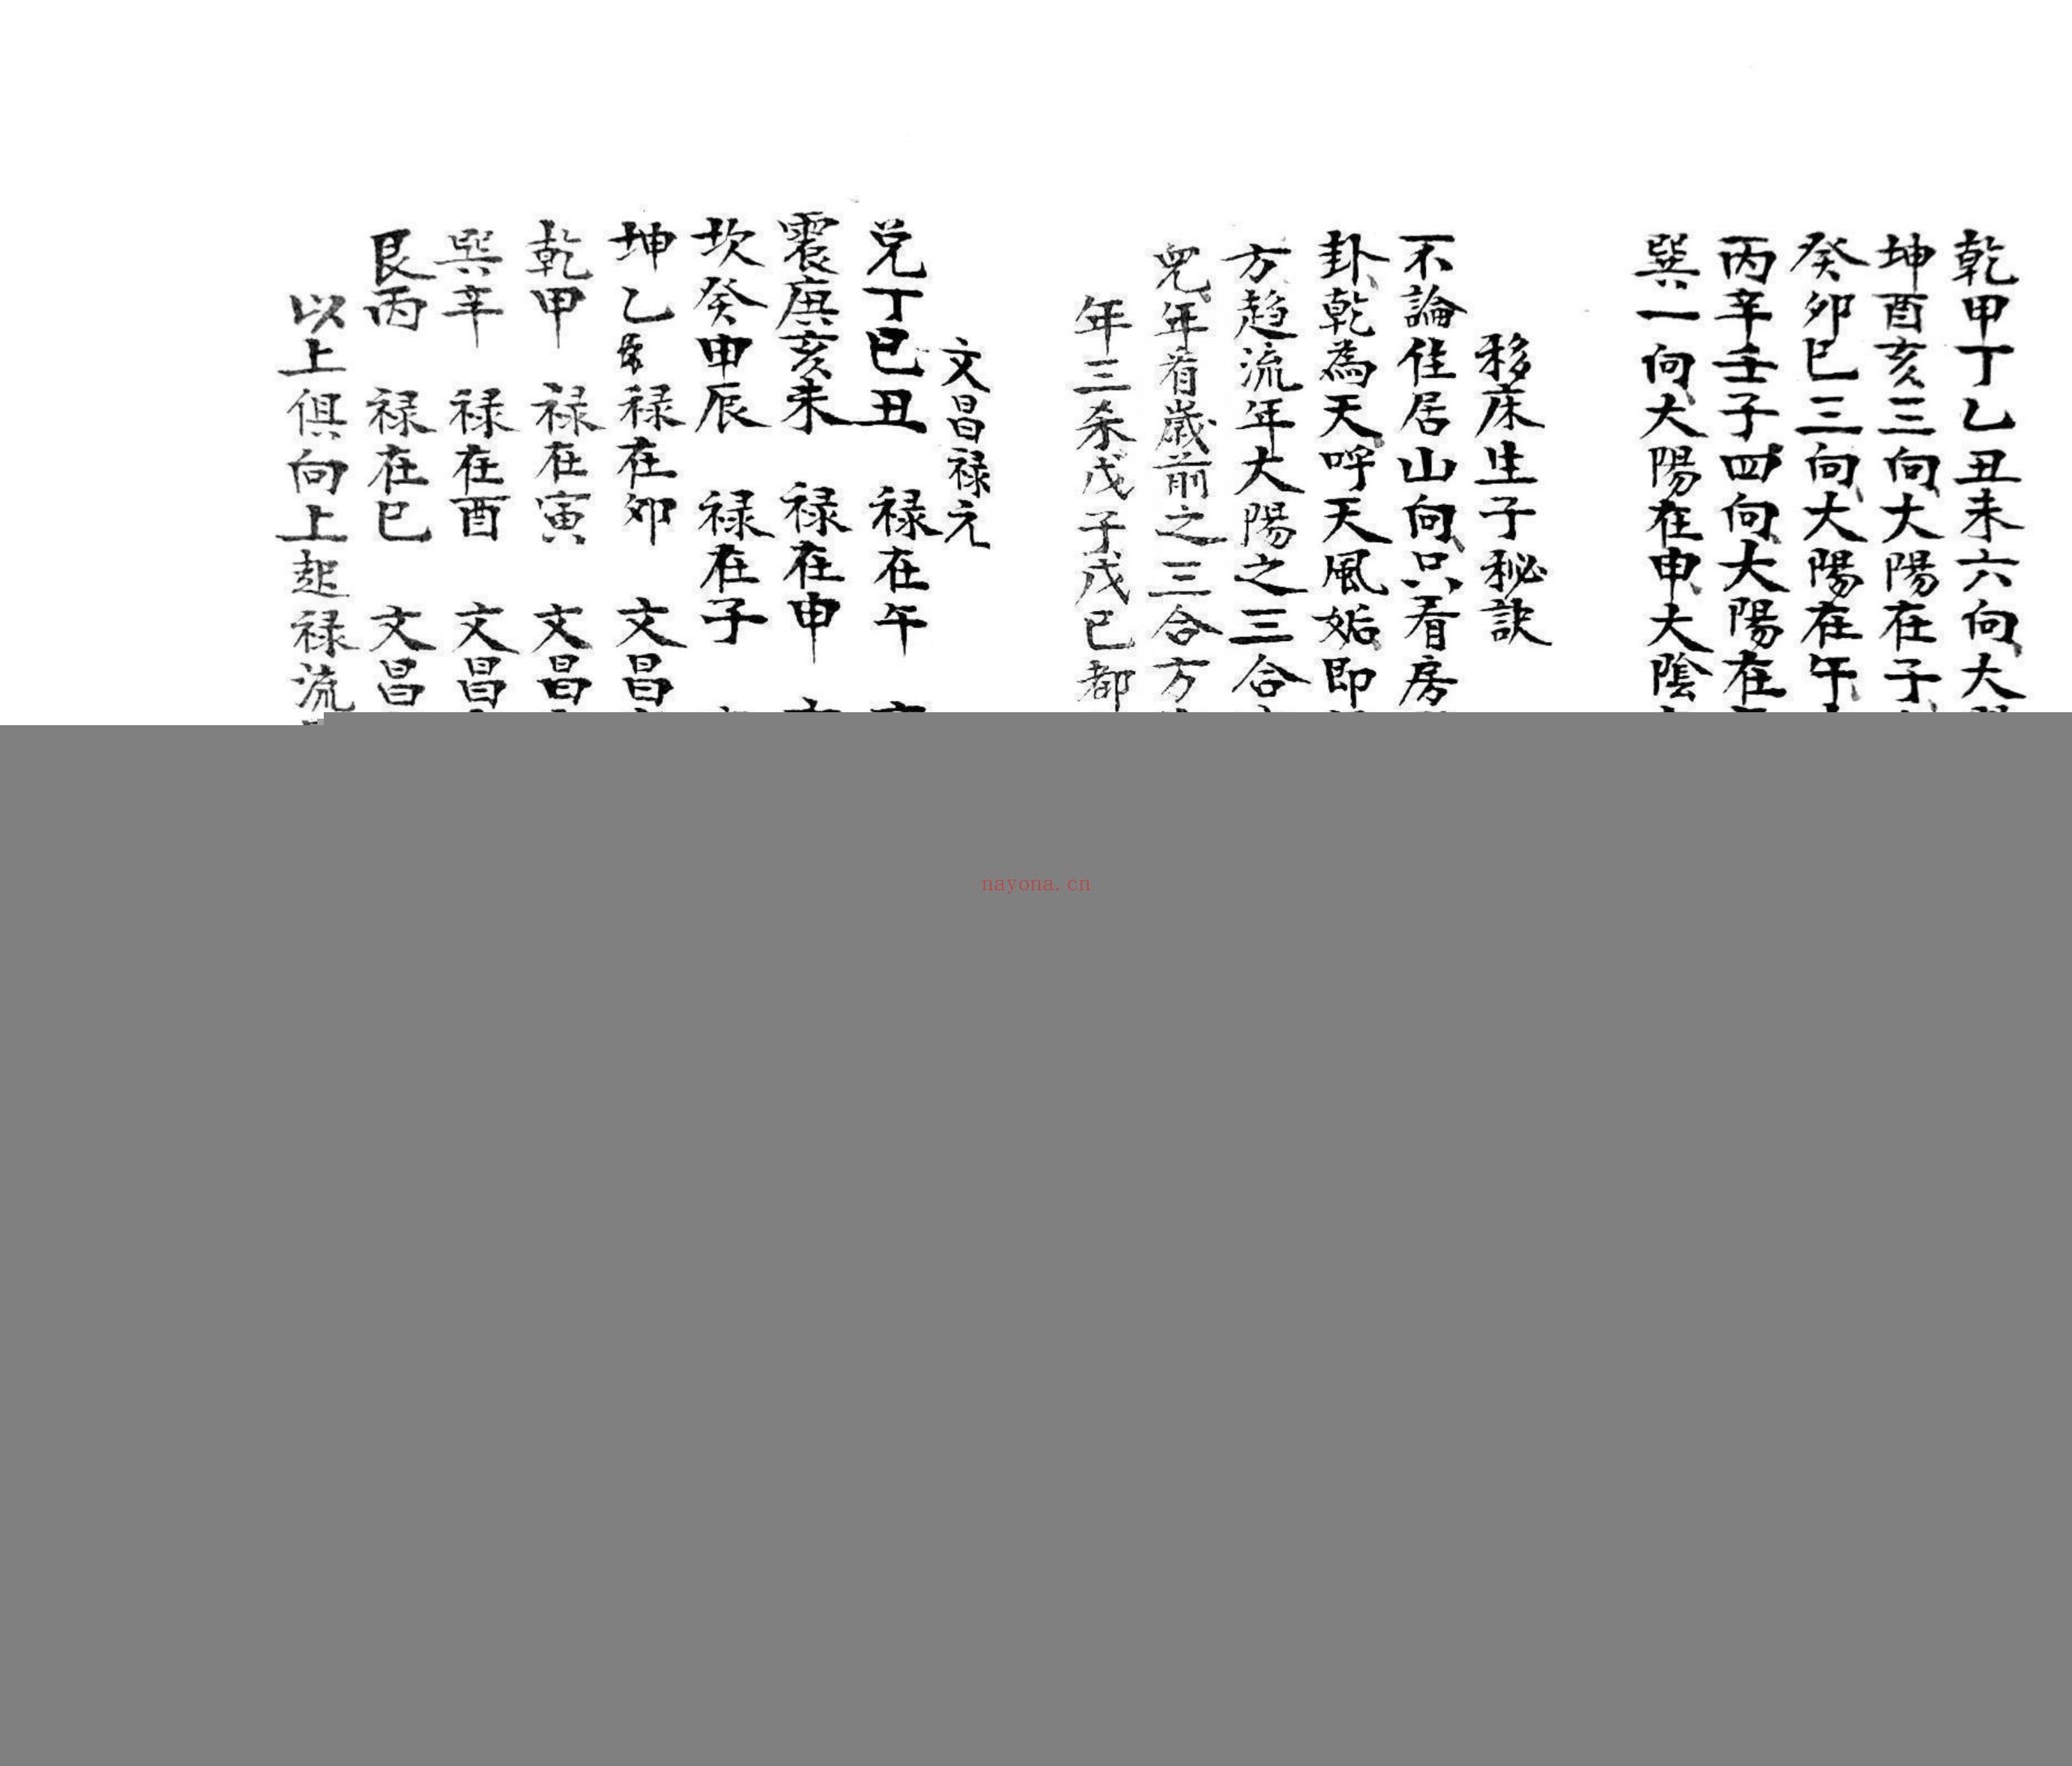 乾甲丁乙丑未六向大
坤酉亥三向大陽在子
癸卯巳三向大陽在午
丙辛壬子四向大陽在
巽一向大陽在申大陰
移床生子秘訣
不論住居山向只看房
卦乾為天呼天風姤即
方趋流年大陽之三合
兒年看歲前之三合方
年三杀戊子戌巳都
文昌禄元
兑丁巳丑 禄在午
震庚亥未 禄在申
坎癸申辰 禄在子
坤乙 禄在卯 文昌
乾甲 禄在寅 文昌
巽辛 禄在酉 文昌
艮丙 禄在巳 文昌
以上俱向上起禄流
nayona.cn